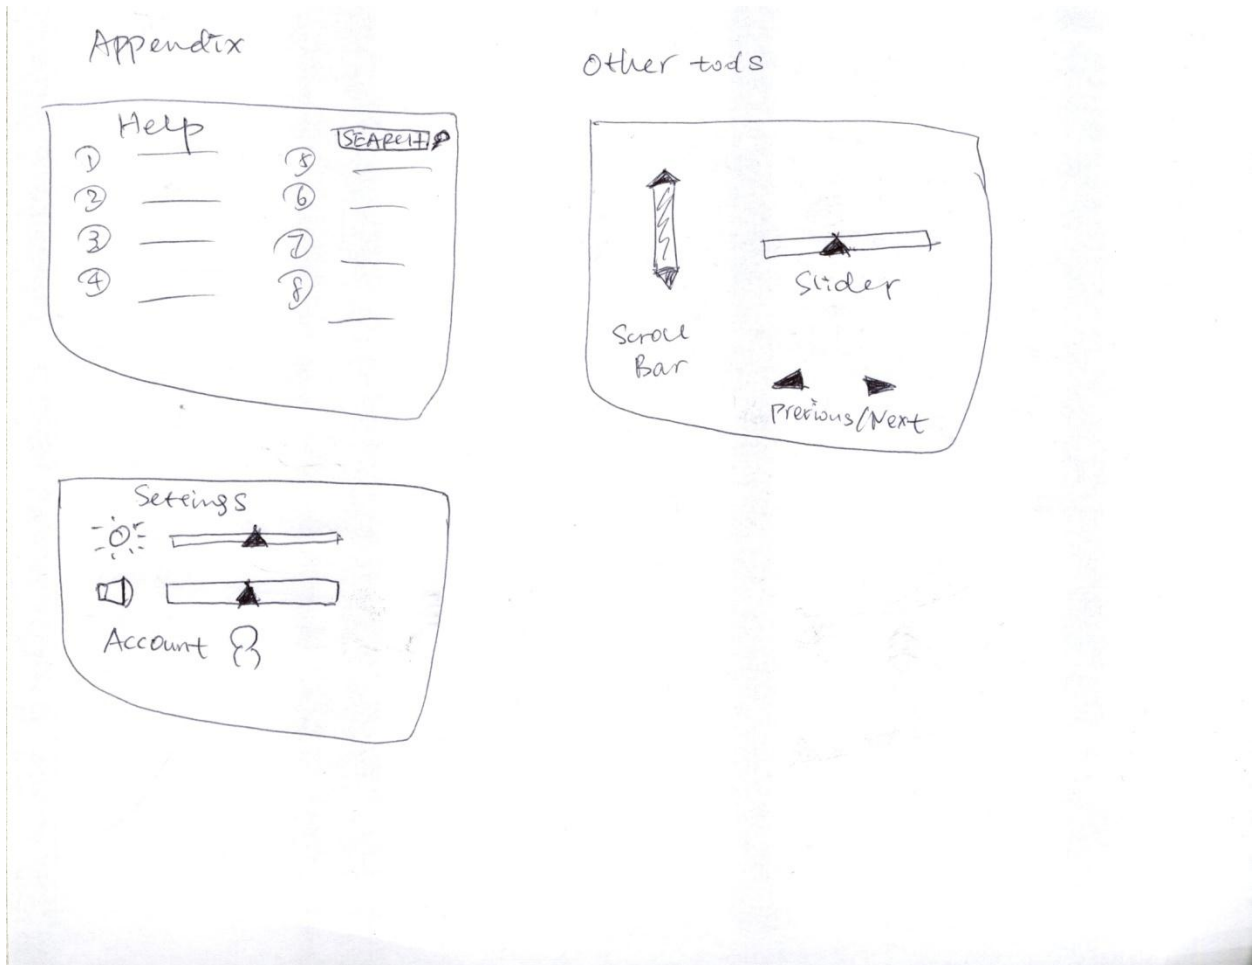 Appendix
Help
SEARCH
1
2
3
4
5
6
7
8
Settings
Account
Other tools
Scroll
Bar
Slider
Previous/Next